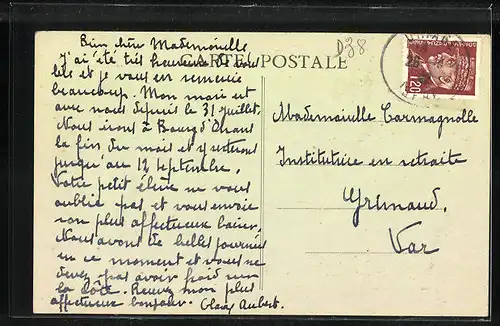 Bien chère Mademoiselle
J'ai été très heureuse de vous
lire et je vous en remercie
beaucoup. Mon mari est
avec nous depuis le 31 juillet.
Nous irons à Bourg d'Oisans
la fin du mois et y resterons
jusqu'au 12 septembre.
Votre petit élève ne vous
oublie pas et vous envoie
son plus affectueux baiser.
Nous avons de belles journées
en ce moment et vous ne
devez pas avoir froid sur
la côte. Recevez mon plus
affectueux bonjour. Aubert.
CARTE POSTALE
D38
1F20
Mademoiselle Carmagnolle
Institutrice en retraite
Grimaud,
Var